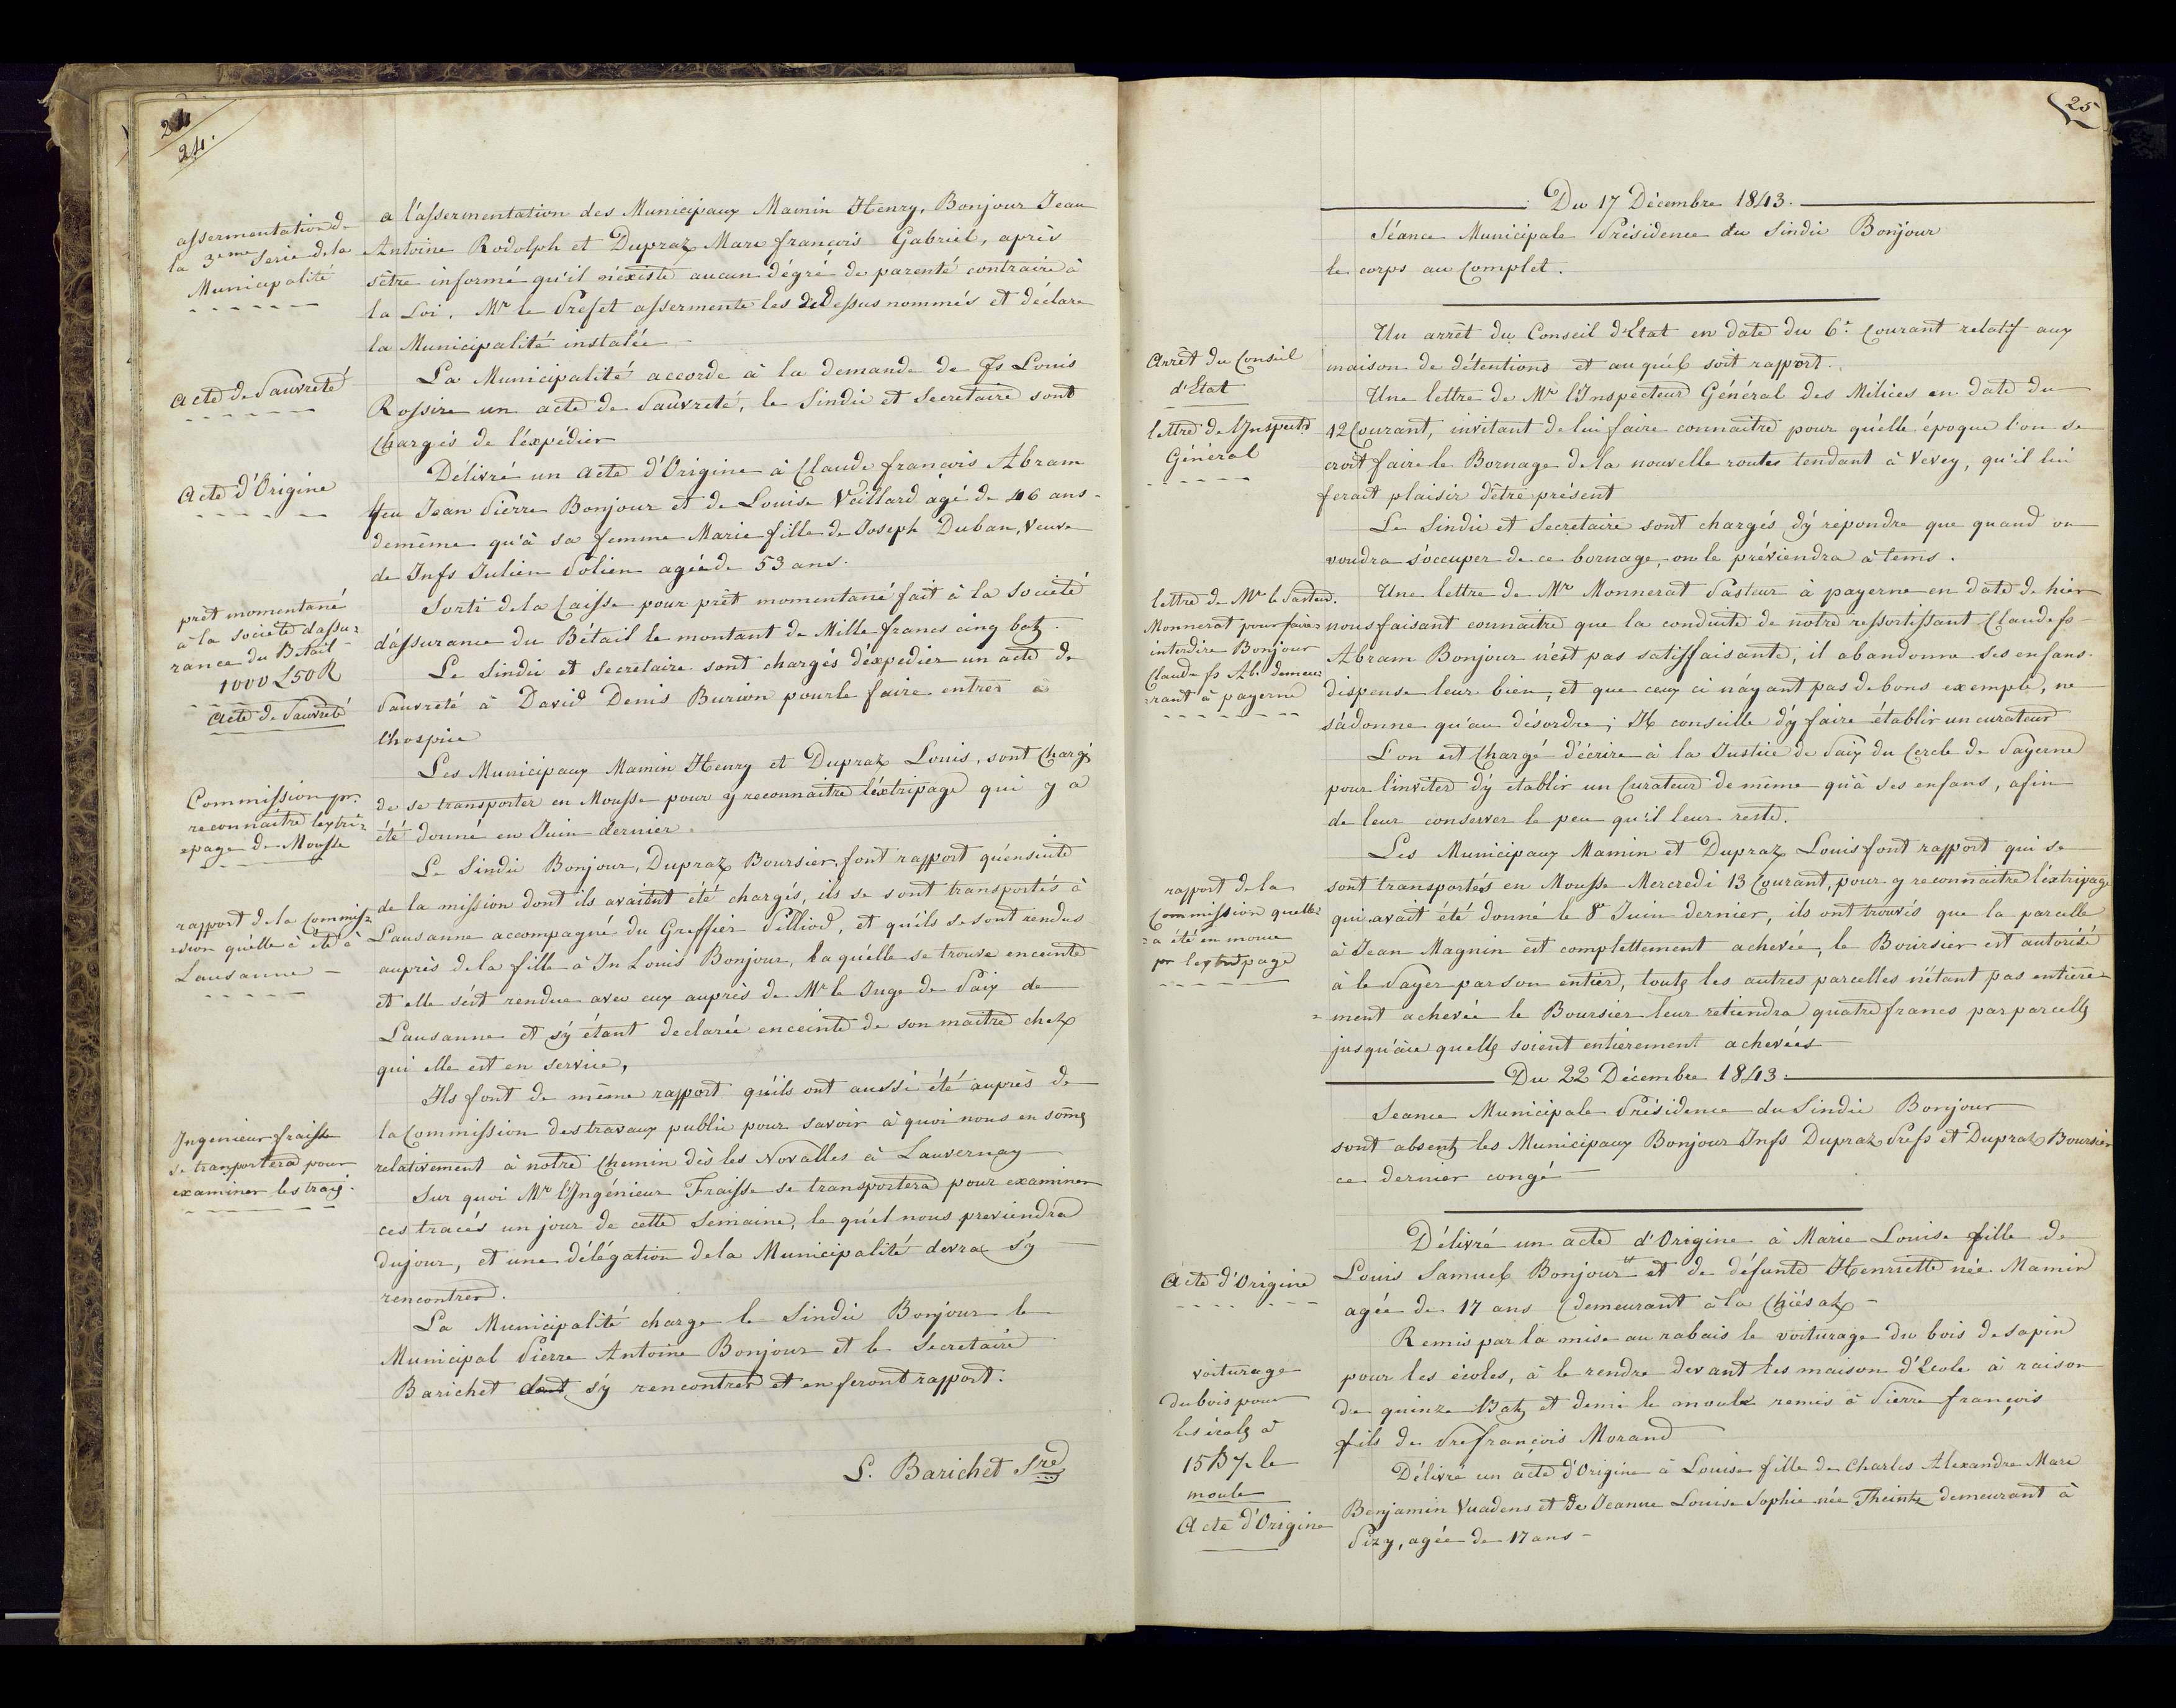 24.
assermentation de
la 3eme Serie de la
Municipalité
a l'assermentation des Municipaux Mamin Henry, Bonjour Jean
Antoine Rodolph et Dupraz Marc françois Gabriel, après
s'être informé qu'il n'existe aucun dégré de parenté contraire à
la Loi. Mr le Prefet assermente les dessus nommés et déclare
la Municipalité instalée
Acte de Pauvreté
La Municipalité accorde à la demande de Fs Louis
Rossire un acte de Pauvreté, le Sindic et Secretaire sont
Chargés de l'éxpédier
Acte d'Origine
Délivré un Acte d'Origine à Claude françois Abram
feu Jean Pierre Bonjour et de Louise Veillard agé de 46 ans
demême qu'à sa femme Marie fille de Joseph Duban, Veuve
de Jnfs Julien Polien agée de 53 ans.
prêt momentané
à la societé d'assu=
rance du Bétail
1000 L 50 R
Sorti de la Caisse pour prêt momentané fait à la Societé
d'assurance du Bétail le montant de Mille francs cinq batz.
Acte de Pauvreté
Le Sindic et Secretaire sont chargés d'expédier un acte de
Pauvreté à David Denis Burion pour le faire entrer à
l'hospice
Commission pr.
reconnaitre l'extri=
=page de Mousse
Les Municipaux Mamin Henry et Dupraz Louis, sont Chargés
de se transporter en Mousse pour y reconnaitre l'éxtripage qui y a
été donné en Juin dernier.
rapport de la Commis=
=sion qu'elle à été à
Lausanne
Le Sindic Bonjour, Dupraz Boursier, font rapport qu'ensuite
de la mission dont ils avaient été chargés, ils se sont transportés à
Lausanne accompagné du Greffier Pilliod, et qu'ils se sont rendus
auprès de la fille à Jn Louis Bonjour, laquélle se trouve enceinte
et elle s'est rendue avec eux auprès de Mr le Juge de Paix de
Lausanne et s'y étant declarée enceinte de son maitre chez
qui elle est en service,
Ils font de même rapport qu'ils ont aussi été auprès de
la Commission des travaux public pour savoir à quoi nous en somes
relativement à notre Chemin dès les Novalles à Lauvernay
Ingenieur fraisse
se transportera pour
examiner les tracés.
Sur quoi Mr l'Ingénieur Fraisse se transportera pour examiner
ces tracés un jour de cette Semaine, le quel nous previendra
du jour, et une délégation de la Municipalité devra s'y
rencontrer.
La Municipalité charge le Sindic Bonjour le
Municipal Pierre Antoine Bonjour et le Secretaire
Barichet s'y rencontrer et en feront rapport.
L. Barichet Sre
25
Du 17 Décembre 1843.
Séance Municipale Présidence du Sindic Bonjour
le corps au Complet.
Arrêt du Conseil
d'Etat
Un arrêt du Conseil d'Etat en date du 6e. Courant relatif aux
maison de détentions et auquél soit rapport.
lettre de l'Inspectr
Général
Une lettre de Mr l'Inspecteur Général des Milices en date du
12 Courant, invitant de lui faire connaitre pour qu'elle époque l'on se
croit faire le Bornage de la nouvelle routes tendant à Vevey, qu'il lui
ferait plaisir d'être présent
Le Sindic et Secretaire sont chargés d'y répondre que quand on
voudra s'occuper de ce bornage, on le préviendra à tems.
lettre de Mr le Pasteur
Monnerat pour faire
interdire Bonjour
Claude fs Ab. demeu=
=rant à payerne
Une lettre de Mr Monnerat Pasteur à payerne en date de hier
nous faisant connaitre que la conduite de notre ressortissant Claude fs
Abram Bonjour n'est pas satiffaisante, il abandonne ses enfans
dispense leur bien, et que ceux ci n'ayant pas de bons exemple, ne
s'adonne qu'au désordre; Il conseille d'y faire établir un curateur
L'on est Chargé d'écrire à la Justice de Paix du Cercle de Payerne
pour l'inviter d'y établir un Curateur de même qu'à ses enfans, afin
de leur conserver le peu qu'il leur reste.
rapport de la
Commission quelle
=a été en mousse
pr l'extripage
Les Municipaux Mamin et Dupraz Louis font rapport qui se
sont transportés en Mousse Mercredi 13 Courant, pour y reconnaitre l'éxtripage
qui avait été donné le 8e Juin dernier, ils ont trouvés que la parcelle
à Jean Magnin est complettement achevée, le Boursier est autorisé
à le Payer par son entier, toutes les autres parcelles n'étant pas entière
=ment achevée le Boursier leur retiendra quatre francs par parcelles
jusqu'à ce quelles soient entierement achevées
Du 22 Décembre 1843.
Seance Municipale Présidence du Sindic Bonjour
sont absents les Municipaux Bonjour Jnfs Dupraz Prefs et Dupraz Boursier
ce dernier congé
Acte d'Origine
Délivré un acte d'Origine à Marie Louise fille de
Louis Samuel Bonjour et de défunte Henriette née Mamin
agée de 17 ans demeurant à la Chiésaz
voiturage
du bois pour
les écoles à
15 B ½ le
moule
Remis par la mise au rabais le voiturage du bois de sapin
pour les écoles, à le rendre devant les maison d'Ecole à raison
de quinze Batz et demi le moule remis à Pierre françois
fils de Pre françois Morand
Acte d'Origine
Délivré un acte d'Origine à Louise fille de Charles Alexandre Marc
Benjamin Vuadens et de Jeanne Louise Sophie née Theintz demeurant à
Pizy, agée de 17 ans